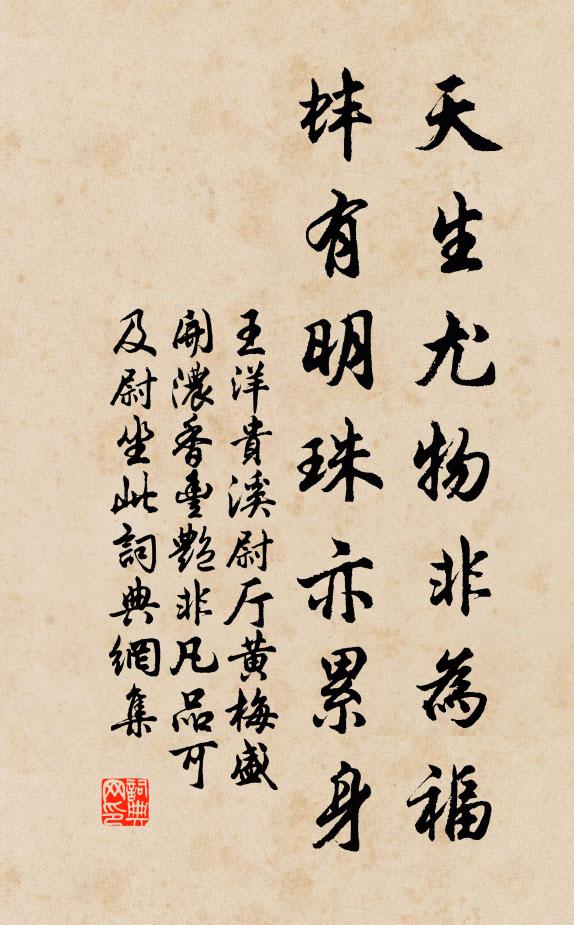 天生尤物非為福
蚌有明珠亦累身
王洋貴溪尉厅黄梅盛
開濃香豊艷非凡品可
及尉坐此詞典網集
詞典
网印